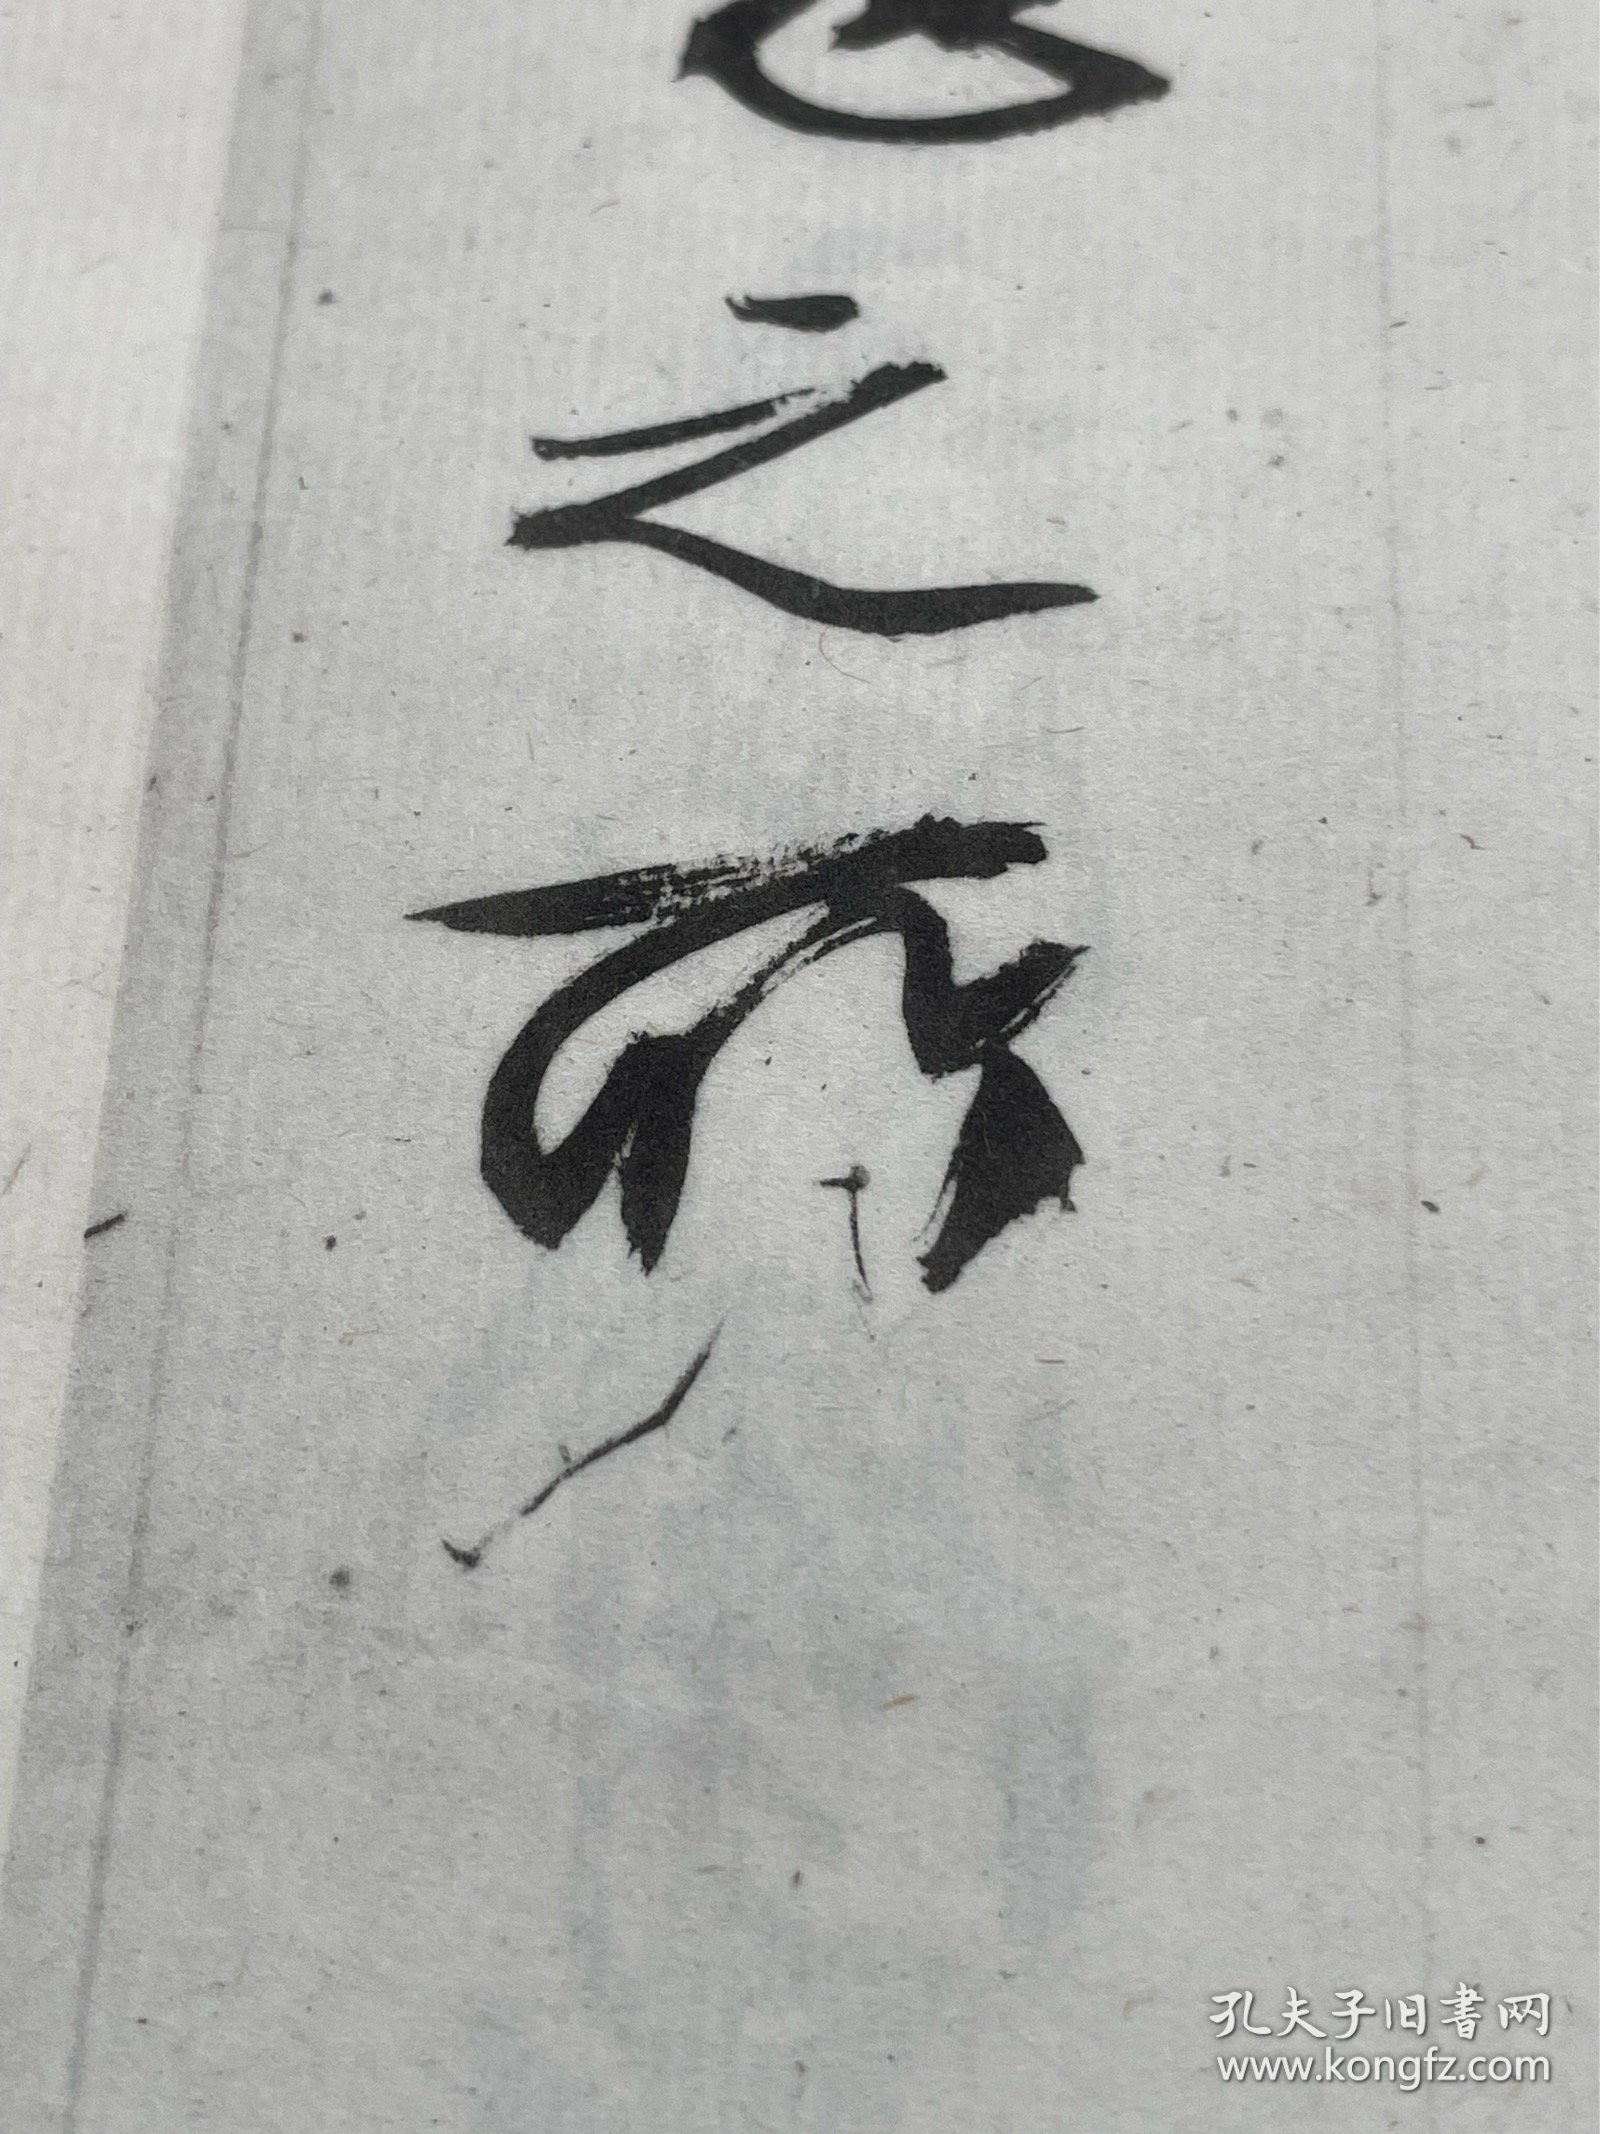 之所
孔夫子旧書网
www.kongfz.com